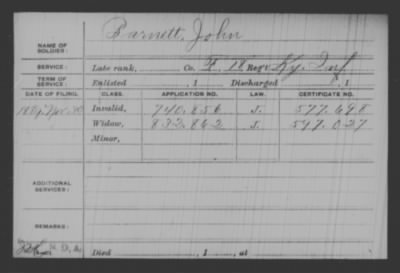 NAME OF SOLDIER: Barnett, John
SERVICE: Late rank, Co. F, 18 Reg't Ky. Inf
TERM OF SERVICE: Enlisted , 1 Discharged , 1
DATE OF FILING. CLASS. APPLICATION NO. LAW. CERTIFICATE NO.
Invalid, 740.856 J. 577.698
Widow, 832.862 J. 547.027
Minor,
ADDITIONAL SERVICES:
REMARKS:
Died , 1 , at